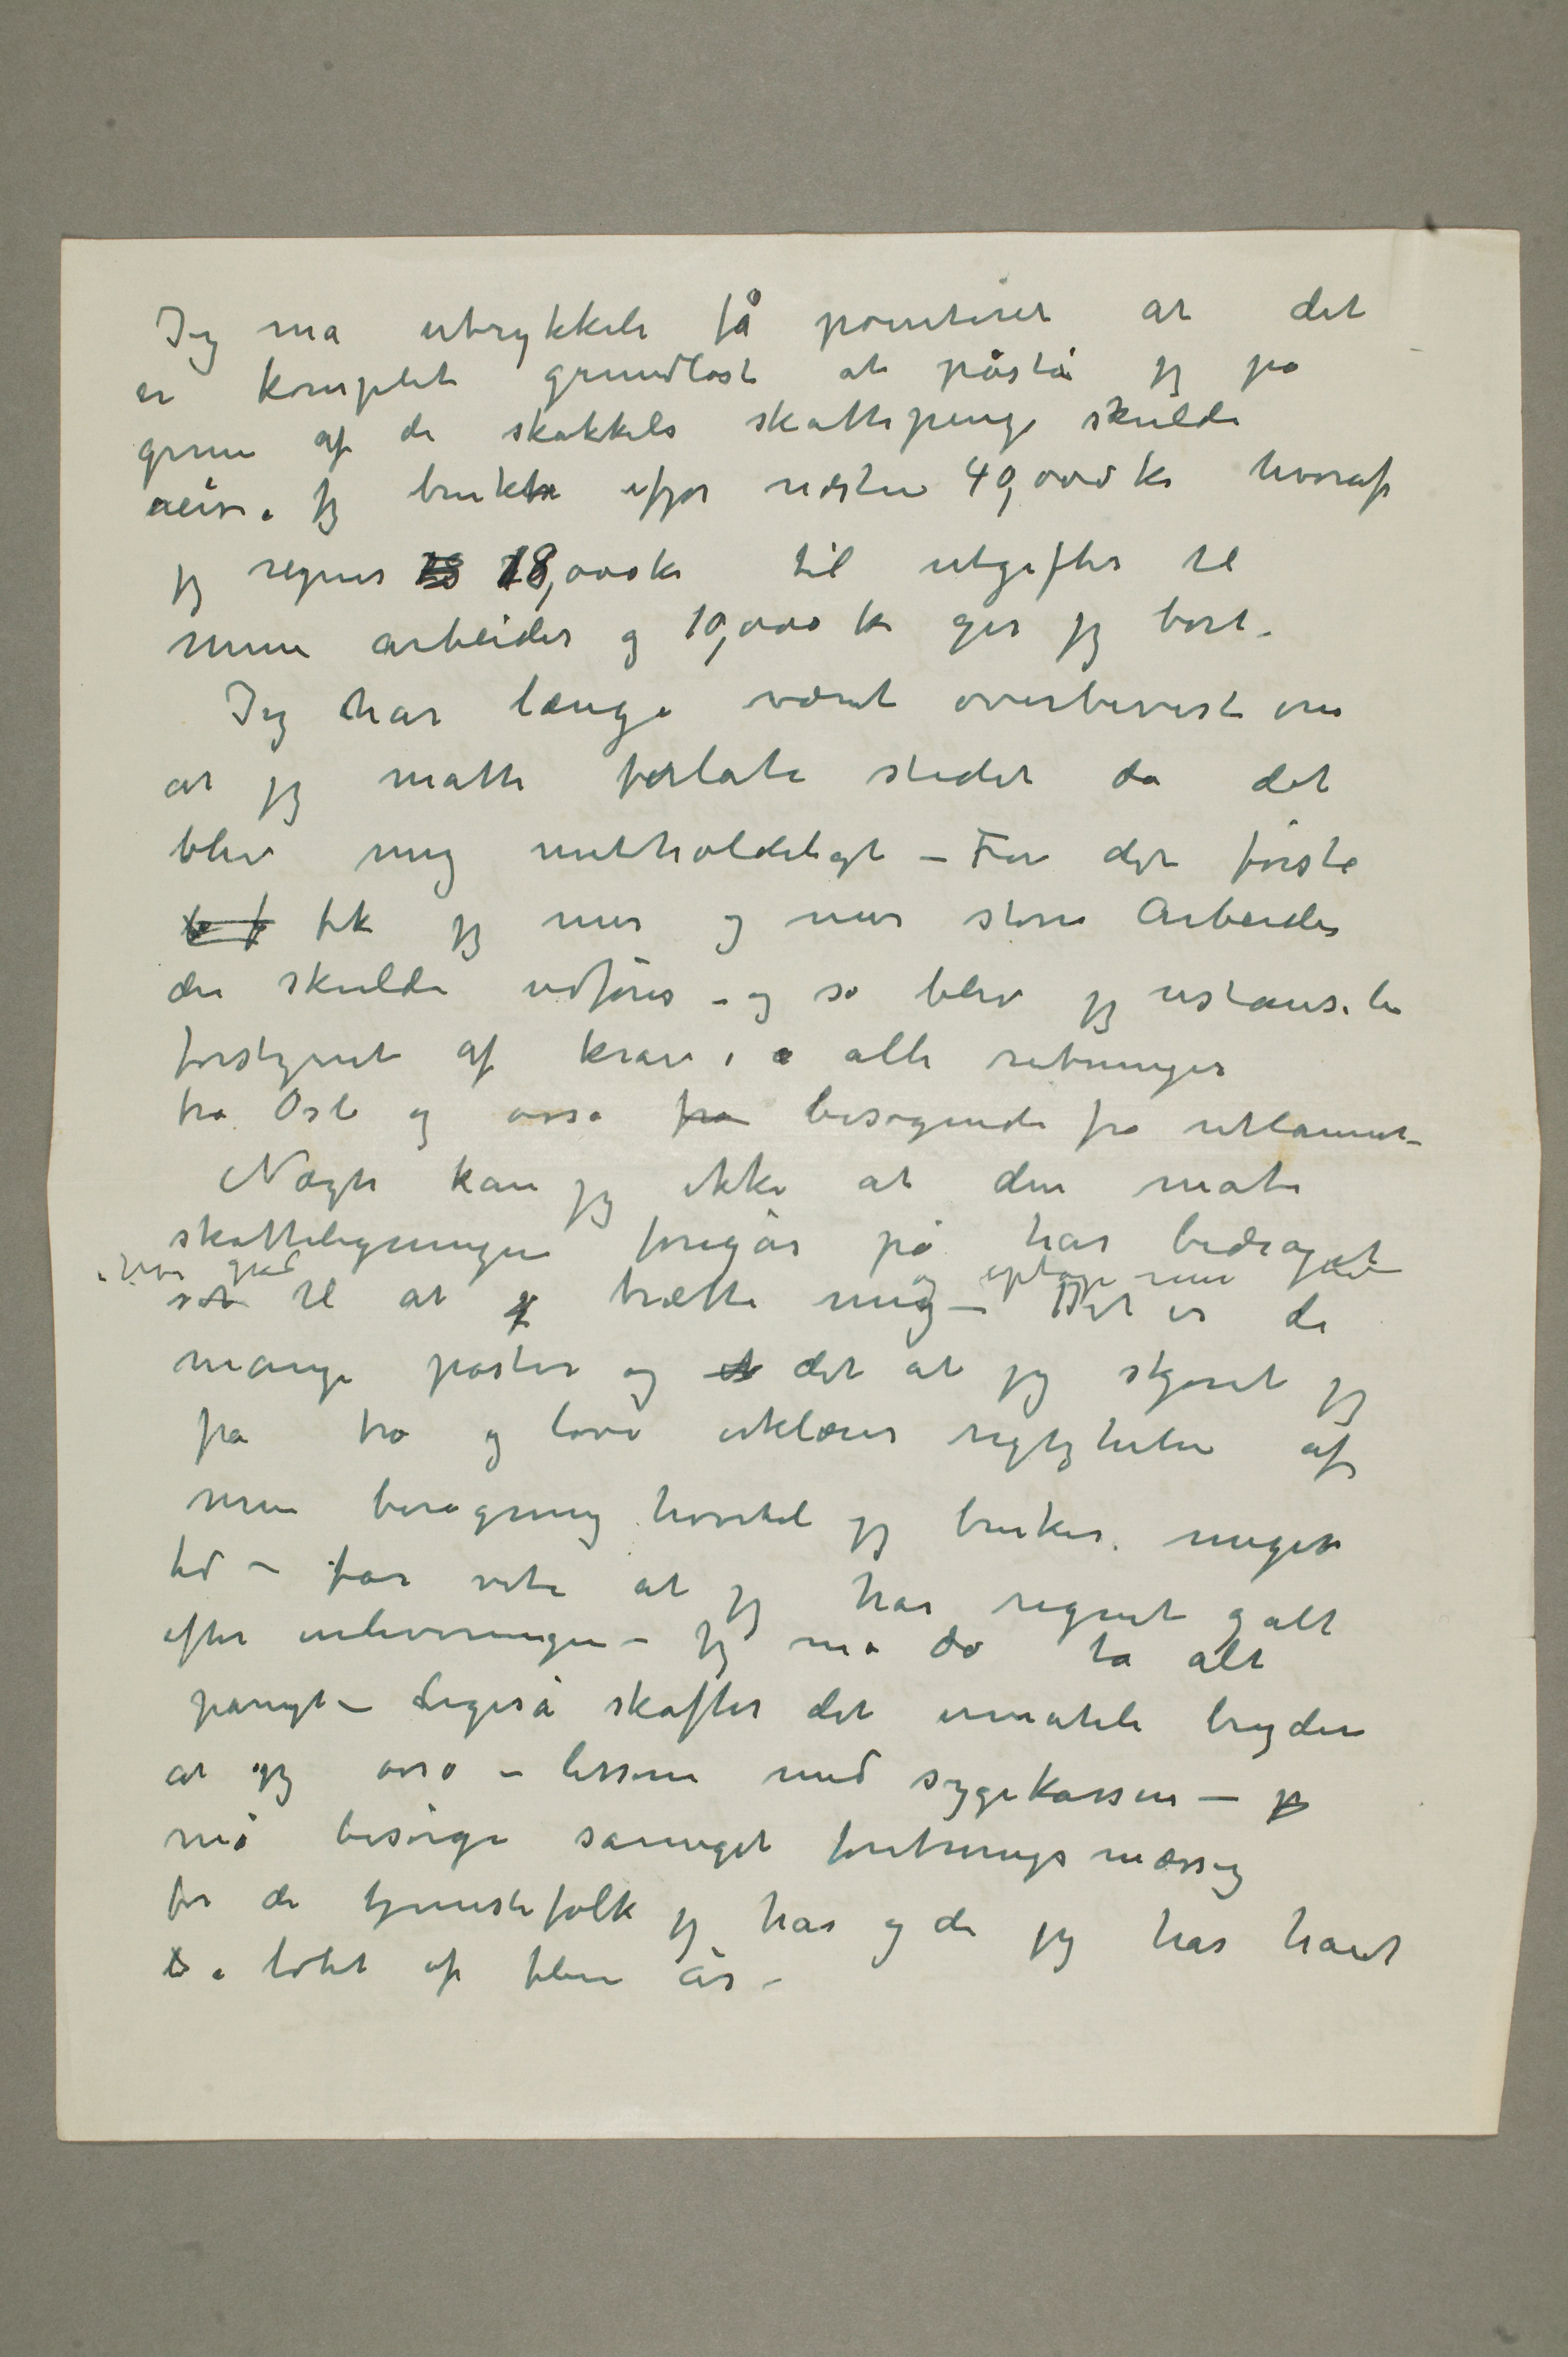 Jeg må utrykkeli få pointeret at det
er komplet grundløst at påstå jeg på
grun af de skakkels skattepenge skulde
reise. Jeg brukte ifjor næsten 40,000 kr hvoraf
jeg regner 18,000 kr til utgifter til
mine arbeider og 10,000 kr ger jeg bort.
Jeg har længe været overbevist om
at jeg måtte forlate stedet da det
blev mig uutholdeligt – For det første
fik jeg mer og mer store Arbeider
der skulde udføres – og så blev jeg ustanseli
forstyrret af krav i alle retninger
fra Oslo og osså fra besøgende fra utlannet –
Nægte kan jeg ikke at den måte
skatteligningen foregår på har bidraget
i høi grad
til at trætte mig og optage min – Det er de
mange poster og det at jeg skjønt jeg
på tro og love erklærer rigtigheten af
min beregning hvortil jeg bruker meget
tid – får vite at jeg har regnet galt
efter inleveringen – Jeg må da ta alt
pånyt – Ligeså skaffer det umåteli bryderi
at jeg osså – lissom med sygekassen – jeg
må besørge sameget foretningsmæssig
for de tjenestefolk jeg har og de jeg har havt
i løbet af flere år –